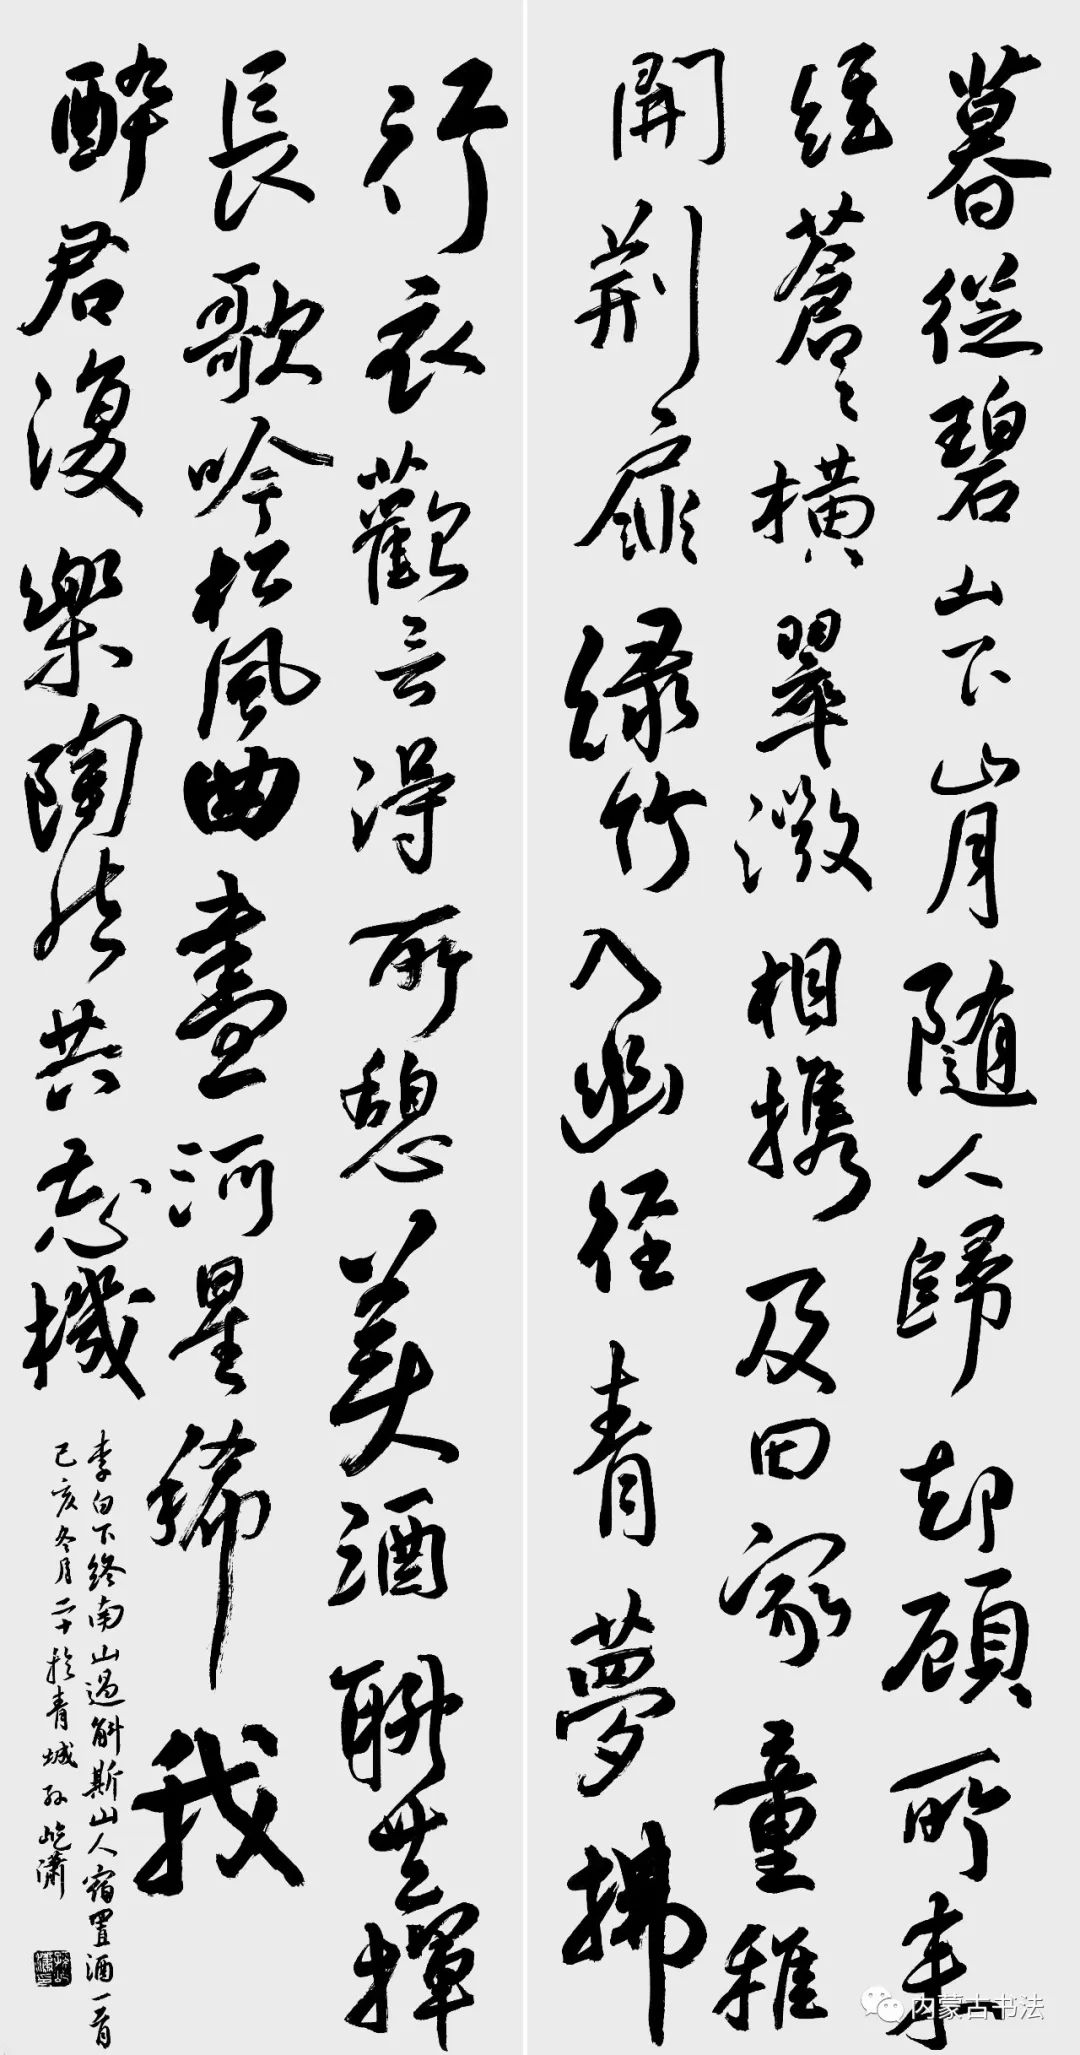 暮從碧山下山月隨人歸却顧所来
徑蒼々橫翠微相攜及田家童稚
開荆扉緑竹入幽徑青夢拂
行衣歡言得所憩美酒聊共揮
長歌吟松風曲盡河星稀我
醉君復樂陶然共忘機
李白下終南山過斛斯山人宿置酒一首
己亥冬月二十於青城孙屹潇
内蒙古书法